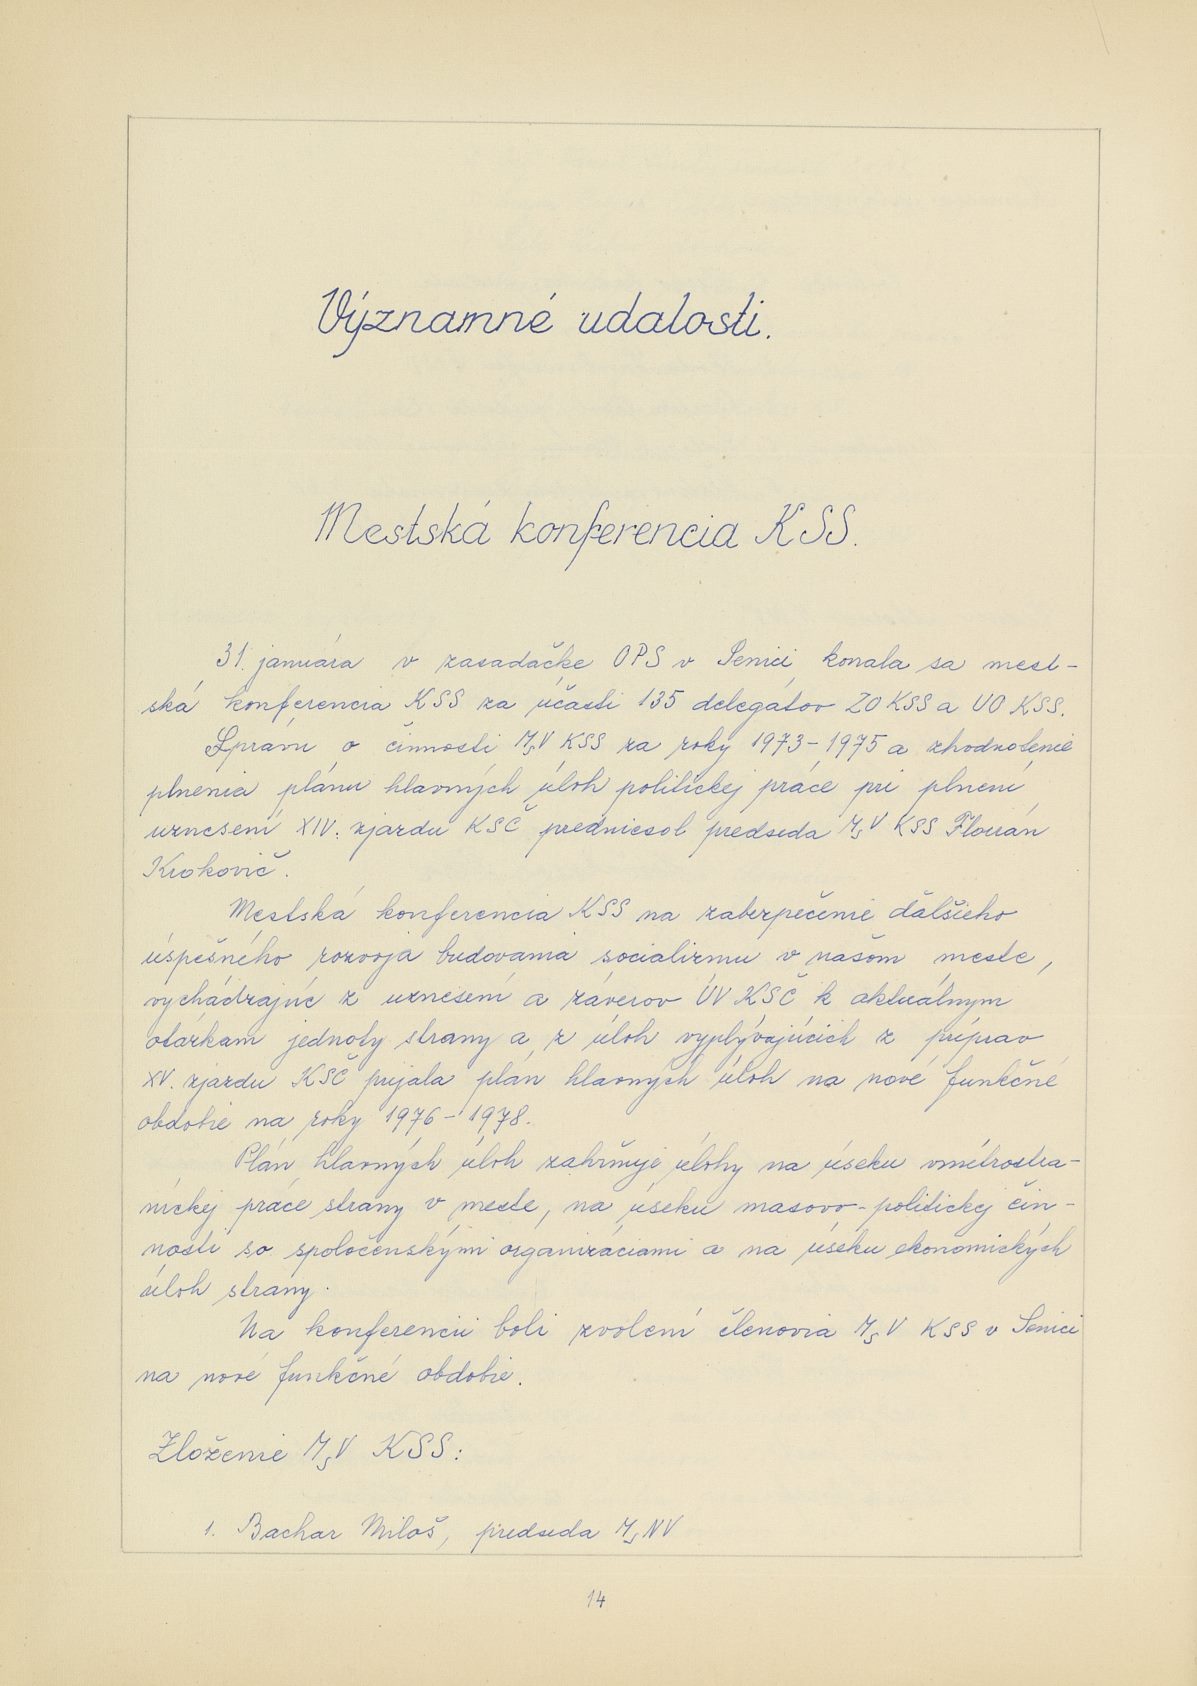 Významné udalosti.
Mestská konferencia KSS.
31. januára v zasadačke OPS v Senici konala sa mest-
ská konferencia KSS za účasti 135 delegátov ZO KSS a UO KSS.
Správu o činnosti MsV KSS za roky 1973-1975 a zhodnotenie
plnenia plánu hlavných úloh politickej práce pri plnení
uznesení XIV. zjazdu KSČ predniesol predseda MsV KSS Florián
Krokovič.
Mestská konferencia KSS na zabezpečenie ďalšieho
úspešného rozvoja budovania socializmu v našom meste,
vychádzajúc z uznesení a záverov ÚV KSČ k aktuálnym
otázkam jednoty strany a z úloh vyplývajúcich z príprav
XV. zjazdu KSČ prijala plán hlavných úloh na nové funkčné
obdobie na roky 1976-1978.
Plán hlavných úloh zahrňuje úlohy na úseku vnútrostra-
níckej práce strany v meste, na úseku masovo-politickej čin-
nosti so spoločenskými organizáciami a na úseku ekonomických
úloh strany.
Na konferencii boli zvolení členovia MsV KSS v Senici
na nové funkčné obdobie.
Zloženie MsV KSS:
1. Bachar Miloš, predseda MsNV
14